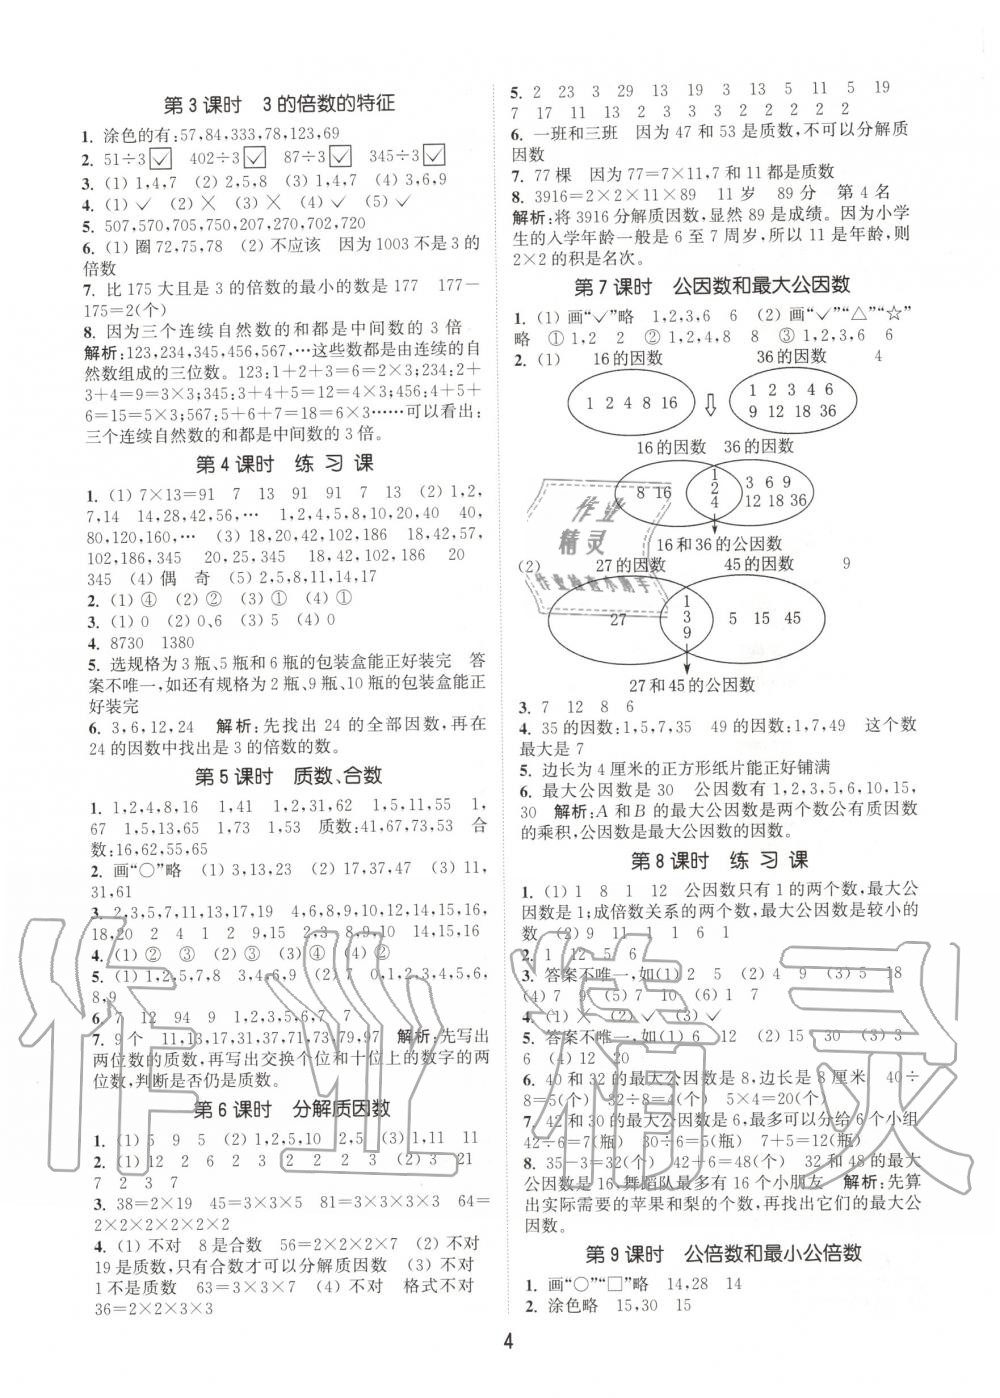 第3课时 3的倍数的特征
1. 涂色的有:57,84,333,78,123,69
2. 51÷3☑ 402÷3☑ 87÷3☑ 345÷3☑
3. (1) 1,4,7 (2) 2,5,8 (3) 1,4,7 (4) 3,6,9
4. (1) ✓ (2) ╳ (3) ╳ (4) ✓
5. 507,570,705,750,207,270,702,720
6. (1) 圈72,75,78 (2) 不应该 因为1003不是3的
倍数
7. 比175大且是3的倍数的最小的数是177 177-
175=2(个)
8. 因为三个连续自然数的和都是中间数的3倍
解析:123,234,345,456,567,…这些数都是由连续的自
然数组成的三位数。123:1+2+3=6=2×3;234:2+
3+4=9=3×3;345:3+4+5=12=4×3;456:4+5+
6=15=5×3;567:5+6+7=18=6×3……可以看出:
三个连续自然数的和都是中间数的3倍。
第4课时 练习课
1. (1) 7×13=91 7 13 91 91 7 13 (2) 1,2,
7,14 14,28,42,56,… 1,2,4,5,8,10,20,40 40,
80,120,160,… (3) 18,20,42,102,186 18,42,57,
102,186,345 20,345 18,42,102,186 20
345 (4) 偶 奇 (5) 2,5,8,11,14,17
2. (1) ④ (2) ② (3) ① (4) ①
3. (1) 0 (2) 0、6 (3) 5 (4) 0
4. 8730 1380
5. 选规格为3瓶、5瓶和6瓶的包装盒能正好装完 答
案不唯一,如还有规格为2瓶、9瓶、10瓶的包装盒能正
好装完
6. 3,6,12,24 解析:先找出24的全部因数,再在
24的因数中找出是3的倍数的数。
第5课时 质数、合数
1. 1,2,4,8,16 1,41 1,2,31,62 1,5,11,55 1,
67 1,5,13,65 1,73 1,53 质数:41,67,73,53 合
数:16,62,55,65
2. 画“○”略 (1) 23,29 (2) 17,37,47 (3) 11,
31,61
3. 2,3,5,7,11,13,17,19 4,6,8,9,10,12,14,15,16,
18,20 2 4 1 2 9,15 2,3 8,9,10 14,15,16
4. (1) ② ③ (2) ③ (3) ④ (4) ②
5. (1) 1,2,5,7,8 3,4,6,9 (2) 2,5,7 0,1,3,4,6,
8,9
6. 7 12 94 9 1,2,3,5,6,7 7
7. 9个 11,13,17,31,37,71,73,79,97 解析:先写出
两位数的质数,再写出交换个位和十位上的数字的两
位数,判断是否仍是质数。
第6课时 分解质因数
1. (1) 5 9 5 (2) 1,2,5,10 2,5 (3) 1,11 11
2. (1) 12 2 6 2 3 2 2 2 3 (2) 3 21
7 2 3 7
3. 38=2×19 45=3×3×5 81=3×3×3×3 64=
2×2×2×2×2×2
4. (1) 不对 8是合数 56=2×2×2×7 (2) 不对
19是质数,只有合数才可以分解质因数 (3) 不对
1不是质数 63=3×3×7 (4) 不对 格式不对
36=2×2×3×3
5. 2 23 3 29 13 19 3 13 5 11 5 19
7 17 11 2 2 2 3 2 2 2 2 2
6. 一班和三班 因为47和53是质数,不可以分解质
因数
7. 77棵 因为77=7×11,7和11都是质数
8. 3916=2×2×11×89 11岁 89分 第4名
解析:将3916分解质因数,显然89是成绩。因为小学
生的入学年龄一般是6至7周岁,所以11是年龄,则
2×2的积是名次。
第7课时 公因数和最大公因数
1. (1) 画“✓”略 1,2,3,6 6 (2) 画“✓”“△”“☆”
略 ① 1,2 2 ② 1,2,4,8 8 ③ 1,2,3,6 6
2. (1) 16的因数 36的因数 4
1 2 4 8 16
1 2 3 4 6
9 12 18 36
16的因数 36的因数
8 16
1
2
4
3 6 9
12 18 36
16和36的公因数
(2) 27的因数 45的因数 9
27
1
3
9
5 15 45
27和45的公因数
3. 7 12 8 6
4. 35的因数:1,5,7,35 49的因数:1,7,49 这个数
最大是7
5. 边长为4厘米的正方形纸片能正好铺满
6. 最大公因数是30 公因数有1,2,3,5,6,10,15,
30 解析:A和B的最大公因数是两个数公有质因数
的乘积,公因数是最大公因数的因数。
第8课时 练习课
1. (1) 1 8 1 12 公因数只有1的两个数,最大公
因数是1;成倍数关系的两个数,最大公因数是较小的
数 (2) 9 11 1 1 6 1
2. 1 12 5 6
3. 答案不唯一,如(1) 2 5 (2) 4 9 (3) 5 18
(4) 7 9 (5) 7 10 (6) 1 7
4. (1) ╳ (2) ✓ (3) ✓
5. 答案不唯一,如(1) 6 12 (2) 15 30 (3) 3
6 (4) 12 20
6. 40和32的最大公因数是8,边长是8厘米 40÷
8=5(个) 32÷8=4(个) 5×4=20(个)
7. 42和30的最大公因数是6,最多可以分给6个小组
42÷6=7(瓶) 30÷6=5(瓶) 7+5=12(瓶)
8. 35-3=32(个) 42+6=48(个) 32和48的最大
公因数是16,舞蹈队最多有16个小朋友 解析:先算
出实际需要的苹果和梨的个数,再找出它们的最大公
因数。
第9课时 公倍数和最小公倍数
1. 画“○”“□”略 14,28 14
2. 涂色略 15,30 15
4
作业
精灵
作业检查小助手
作业精灵